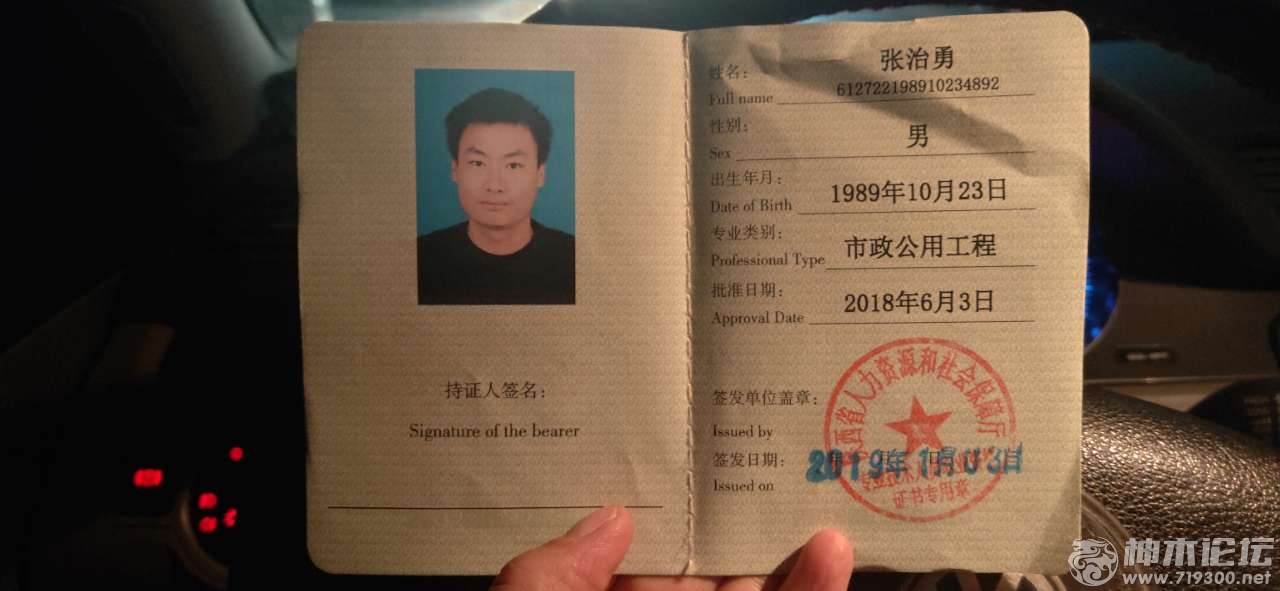 持证人签名：
Signature of the bearer
姓名：
张治勇
Full name
612722198910234892
性别：
男
Sex
出生年月：
1989年10月23日
Date of Birth
专业类别：
市政公用工程
Professional Type
批准日期：
2018年6月3日
Approval Date
签发单位盖章：
Issued by
签发日期：
2019年1月03日
Issued on
陕西省人力资源和社会保障厅
证书专用章
神木论坛
www.719300.net